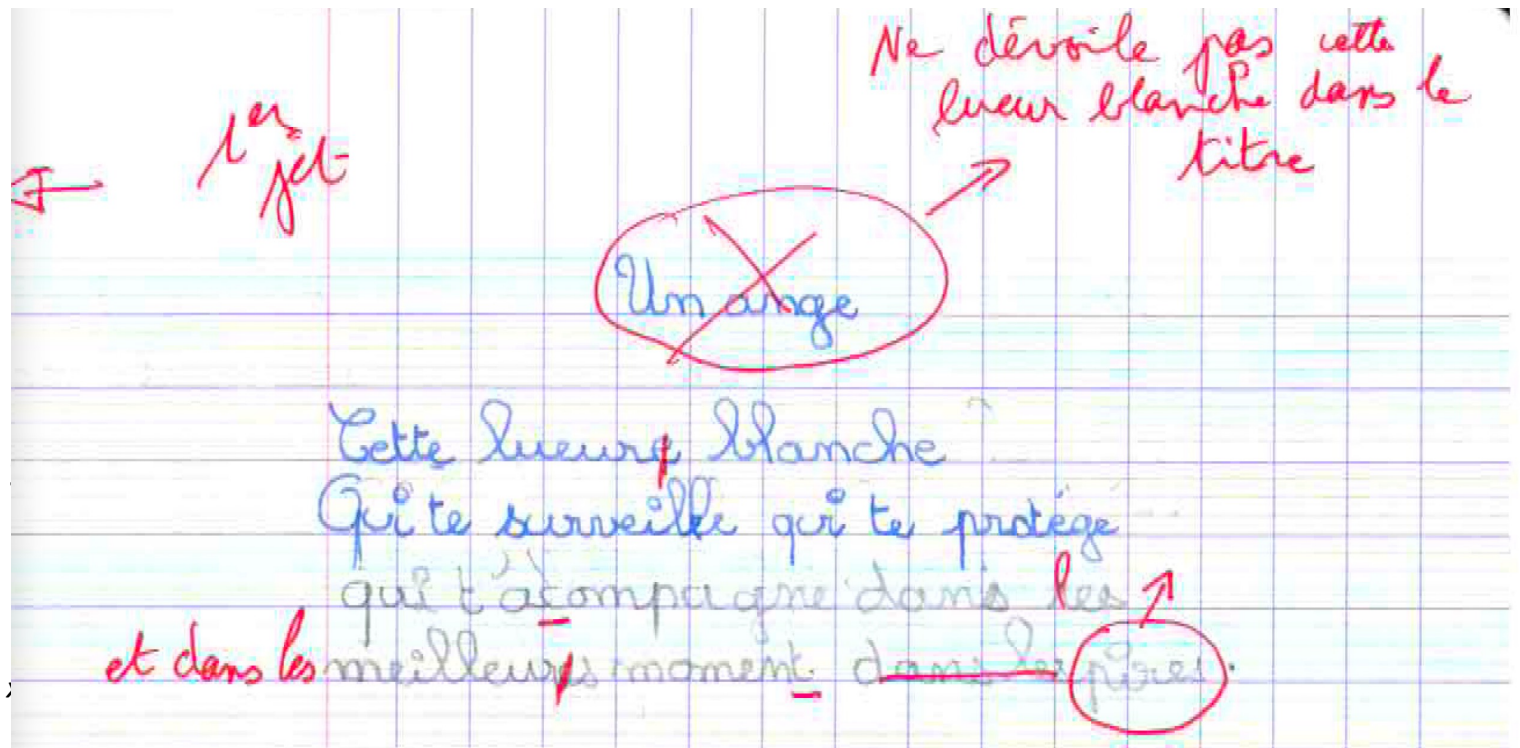 Ne dévoile pas cette
lueur blanche dans le
titre
1er
jet
Un ange
Cette lueure blanche
Qui te surveille qui te protége
qui t'acompagne dans les
et dans les meilleurs moment dans les pires.